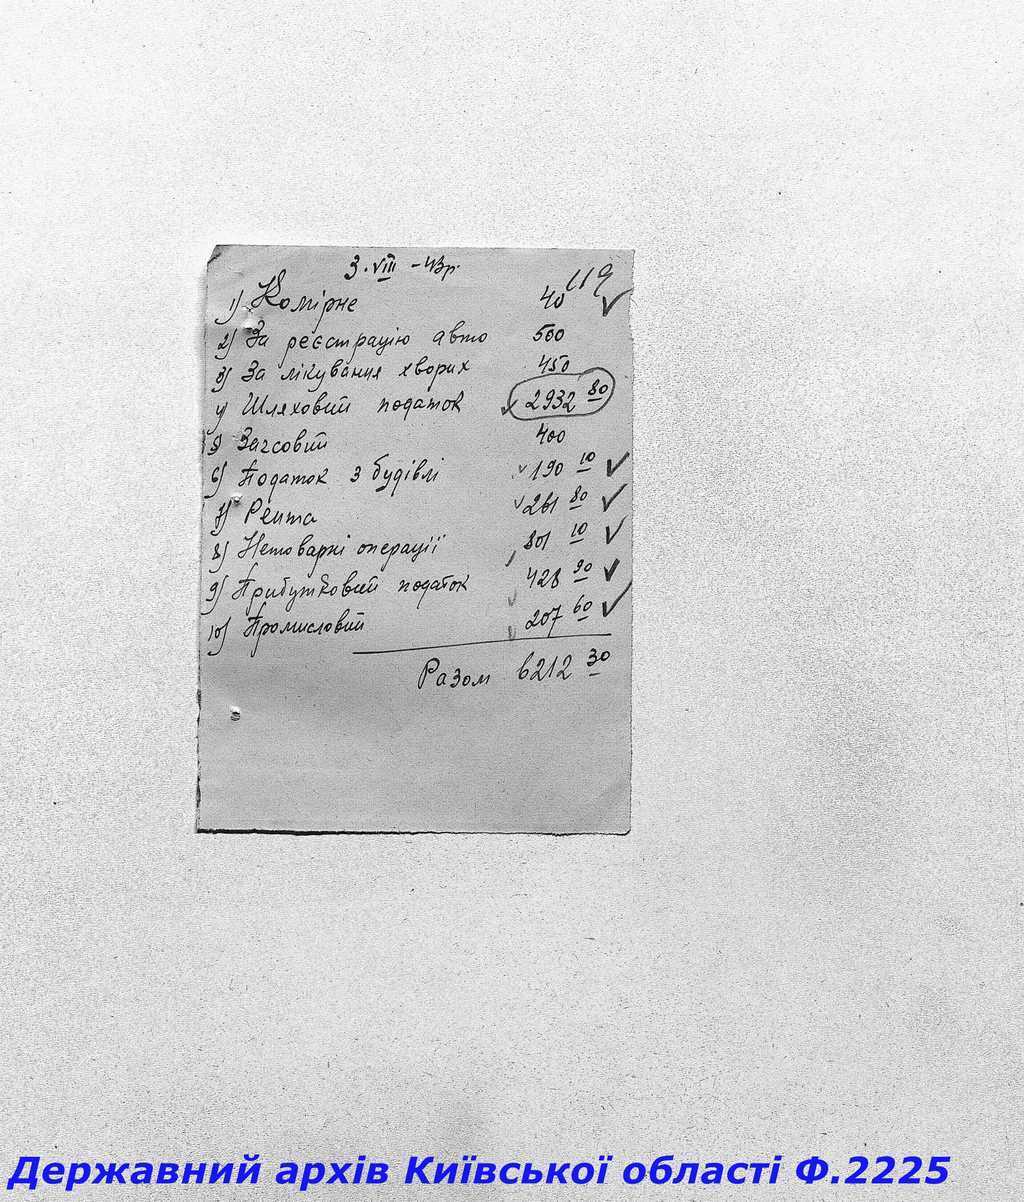 3.VIII -43р.
119
1) Комірне 40 ✓
2) За реєстрацію авто 500
3) За лікування хворих 450
4) Шляховий податок ✓ 2932 80
5) Загсовий 400
6) Податок з будівлі ✓ 190 10 ✓
7) Рента ✓ 261 80 ✓
8) Нетоварні операції 801 10 ✓
9) Прибутковий податок ✓ 428 90 ✓
10) Промисловий ✓ 207 60 ✓
Разом 6212 30
Державний архів Київської області Ф.2225